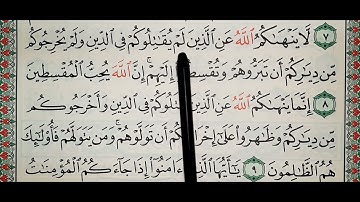 ٧ لَا يَنْهَىٰكُمُ ٱللَّهُ عَنِ ٱلَّذِينَ لَمْ يُقَٰتِلُوكُمْ فِى ٱلدِّينِ وَلَمْ يُخْرِجُوكُم
مِّن دِيَٰرِكُمْ أَن تَبَرُّوهُمْ وَتُقْسِطُ إِلَيْهِمْ إِنَّ ٱللَّهَ يُحِبُّ ٱلْمُقْسِطِينَ
٨ إِنَّمَا يَنْهَىٰكُمُ ٱللَّهُ عَنِ ٱلَّذِينَ لُوكُمْ فِى ٱلدِّينِ وَأَخْرَجُوكُم
مِّن دِيَٰرِكُمْ وَظَٰهَرُوا۟ عَلَىٰٓ إِخْرَا كُمْ أَن تَوَلَّوْهُمْ وَمَن يَتَوَلَّهُمْ فَأُو۟لَٰٓئِكَ
هُمُ ٱلظَّٰلِمُونَ ٩ يَٰٓأَيُّهَا ٱلَّذِ ءَامَنُوٓا۟ إِذَا جَآءَكُمُ ٱلْمُؤْمِنَٰتُ